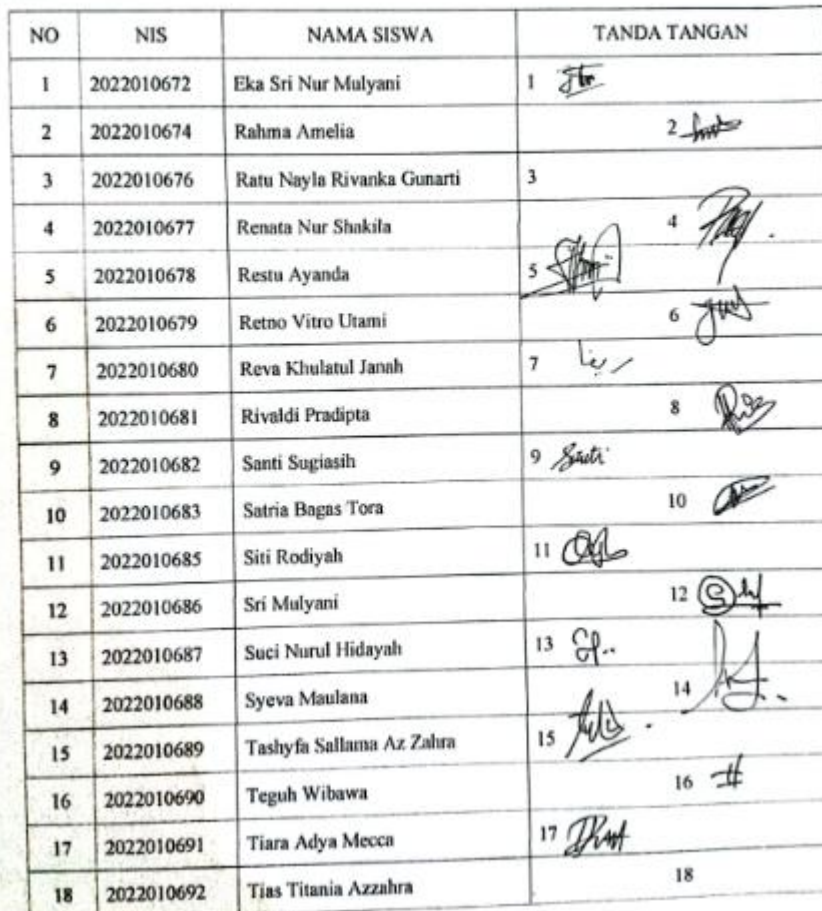 NO NIS NAMA SISWA TANDA TANGAN
1 2022010672 Eka Sri Nur Mulyani 1
2 2022010674 Rahma Amelia 2
3 2022010676 Ratu Nayla Rivanka Gunarti 3
4 2022010677 Renata Nur Shakila 4
5 2022010678 Restu Ayanda 5
6 2022010679 Retno Vitro Utami 6
7 2022010680 Reva Khulatul Janah 7
8 2022010681 Rivaldi Pradipta 8
9 2022010682 Santi Sugiasih 9
10 2022010683 Satria Bagas Tora 10
11 2022010685 Siti Rodiyah 11
12 2022010686 Sri Mulyani 12
13 2022010687 Suci Nurul Hidayah 13
14 2022010688 Syeva Maulana 14
15 2022010689 Tashyfa Sallama Az Zahra 15
16 2022010690 Teguh Wibawa 16
17 2022010691 Tiara Adya Mecca 17
18 2022010692 Tias Titania Azzahra 18